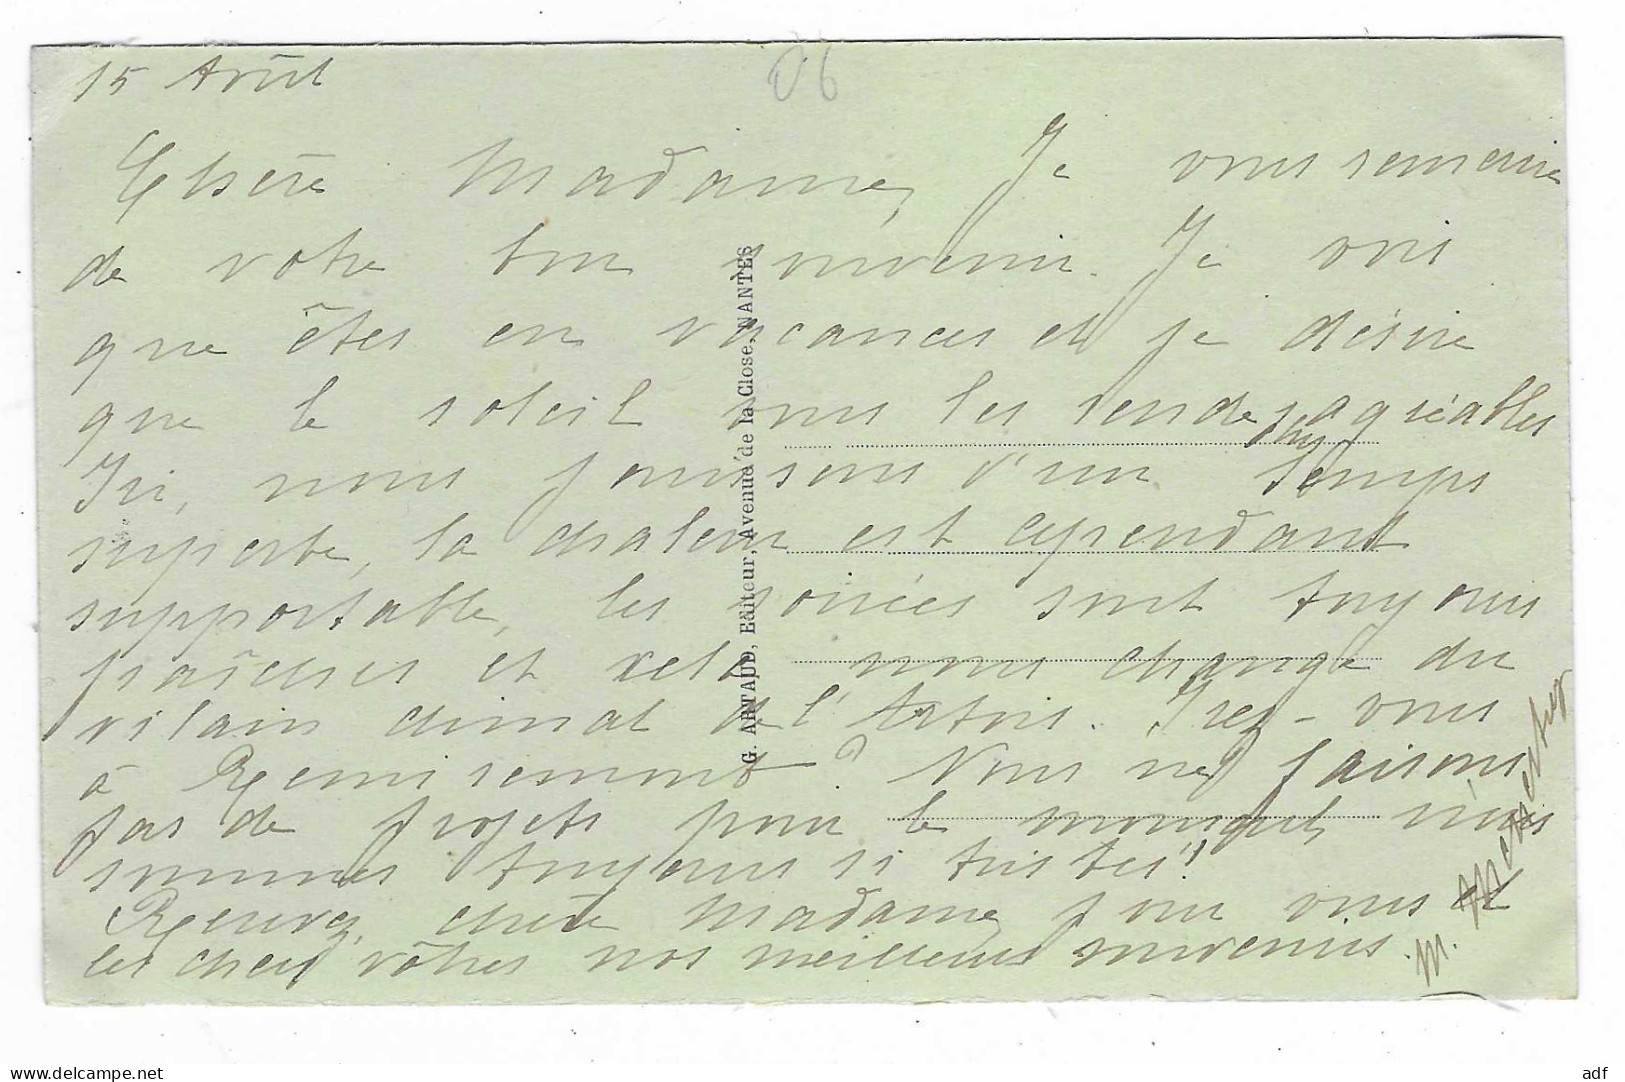 15 Août
06
Chère Madame, Je vous remercie
de votre bon souvenir. Je vois
que êtes en vacances et je désire
que le soleil vous les rende agréables
Ici, nous jouissons d'un temps
superbe, la chaleur est cependant
supportable, les soirées sont toujours
fraîches et cela nous change du
vilain climat de l'Artois. Irez-vous
à Remiremont ? Nous ne faisons
pas de projets pour le moment, nous
sommes toujours si tristes !
Recevez, chère Madame, pour vous et
les chers vôtres nos meilleurs souvenirs.
M.
G. ARTAUD, Editeur, Avenue de la Close, NANTES
www.delcampe.net
adf